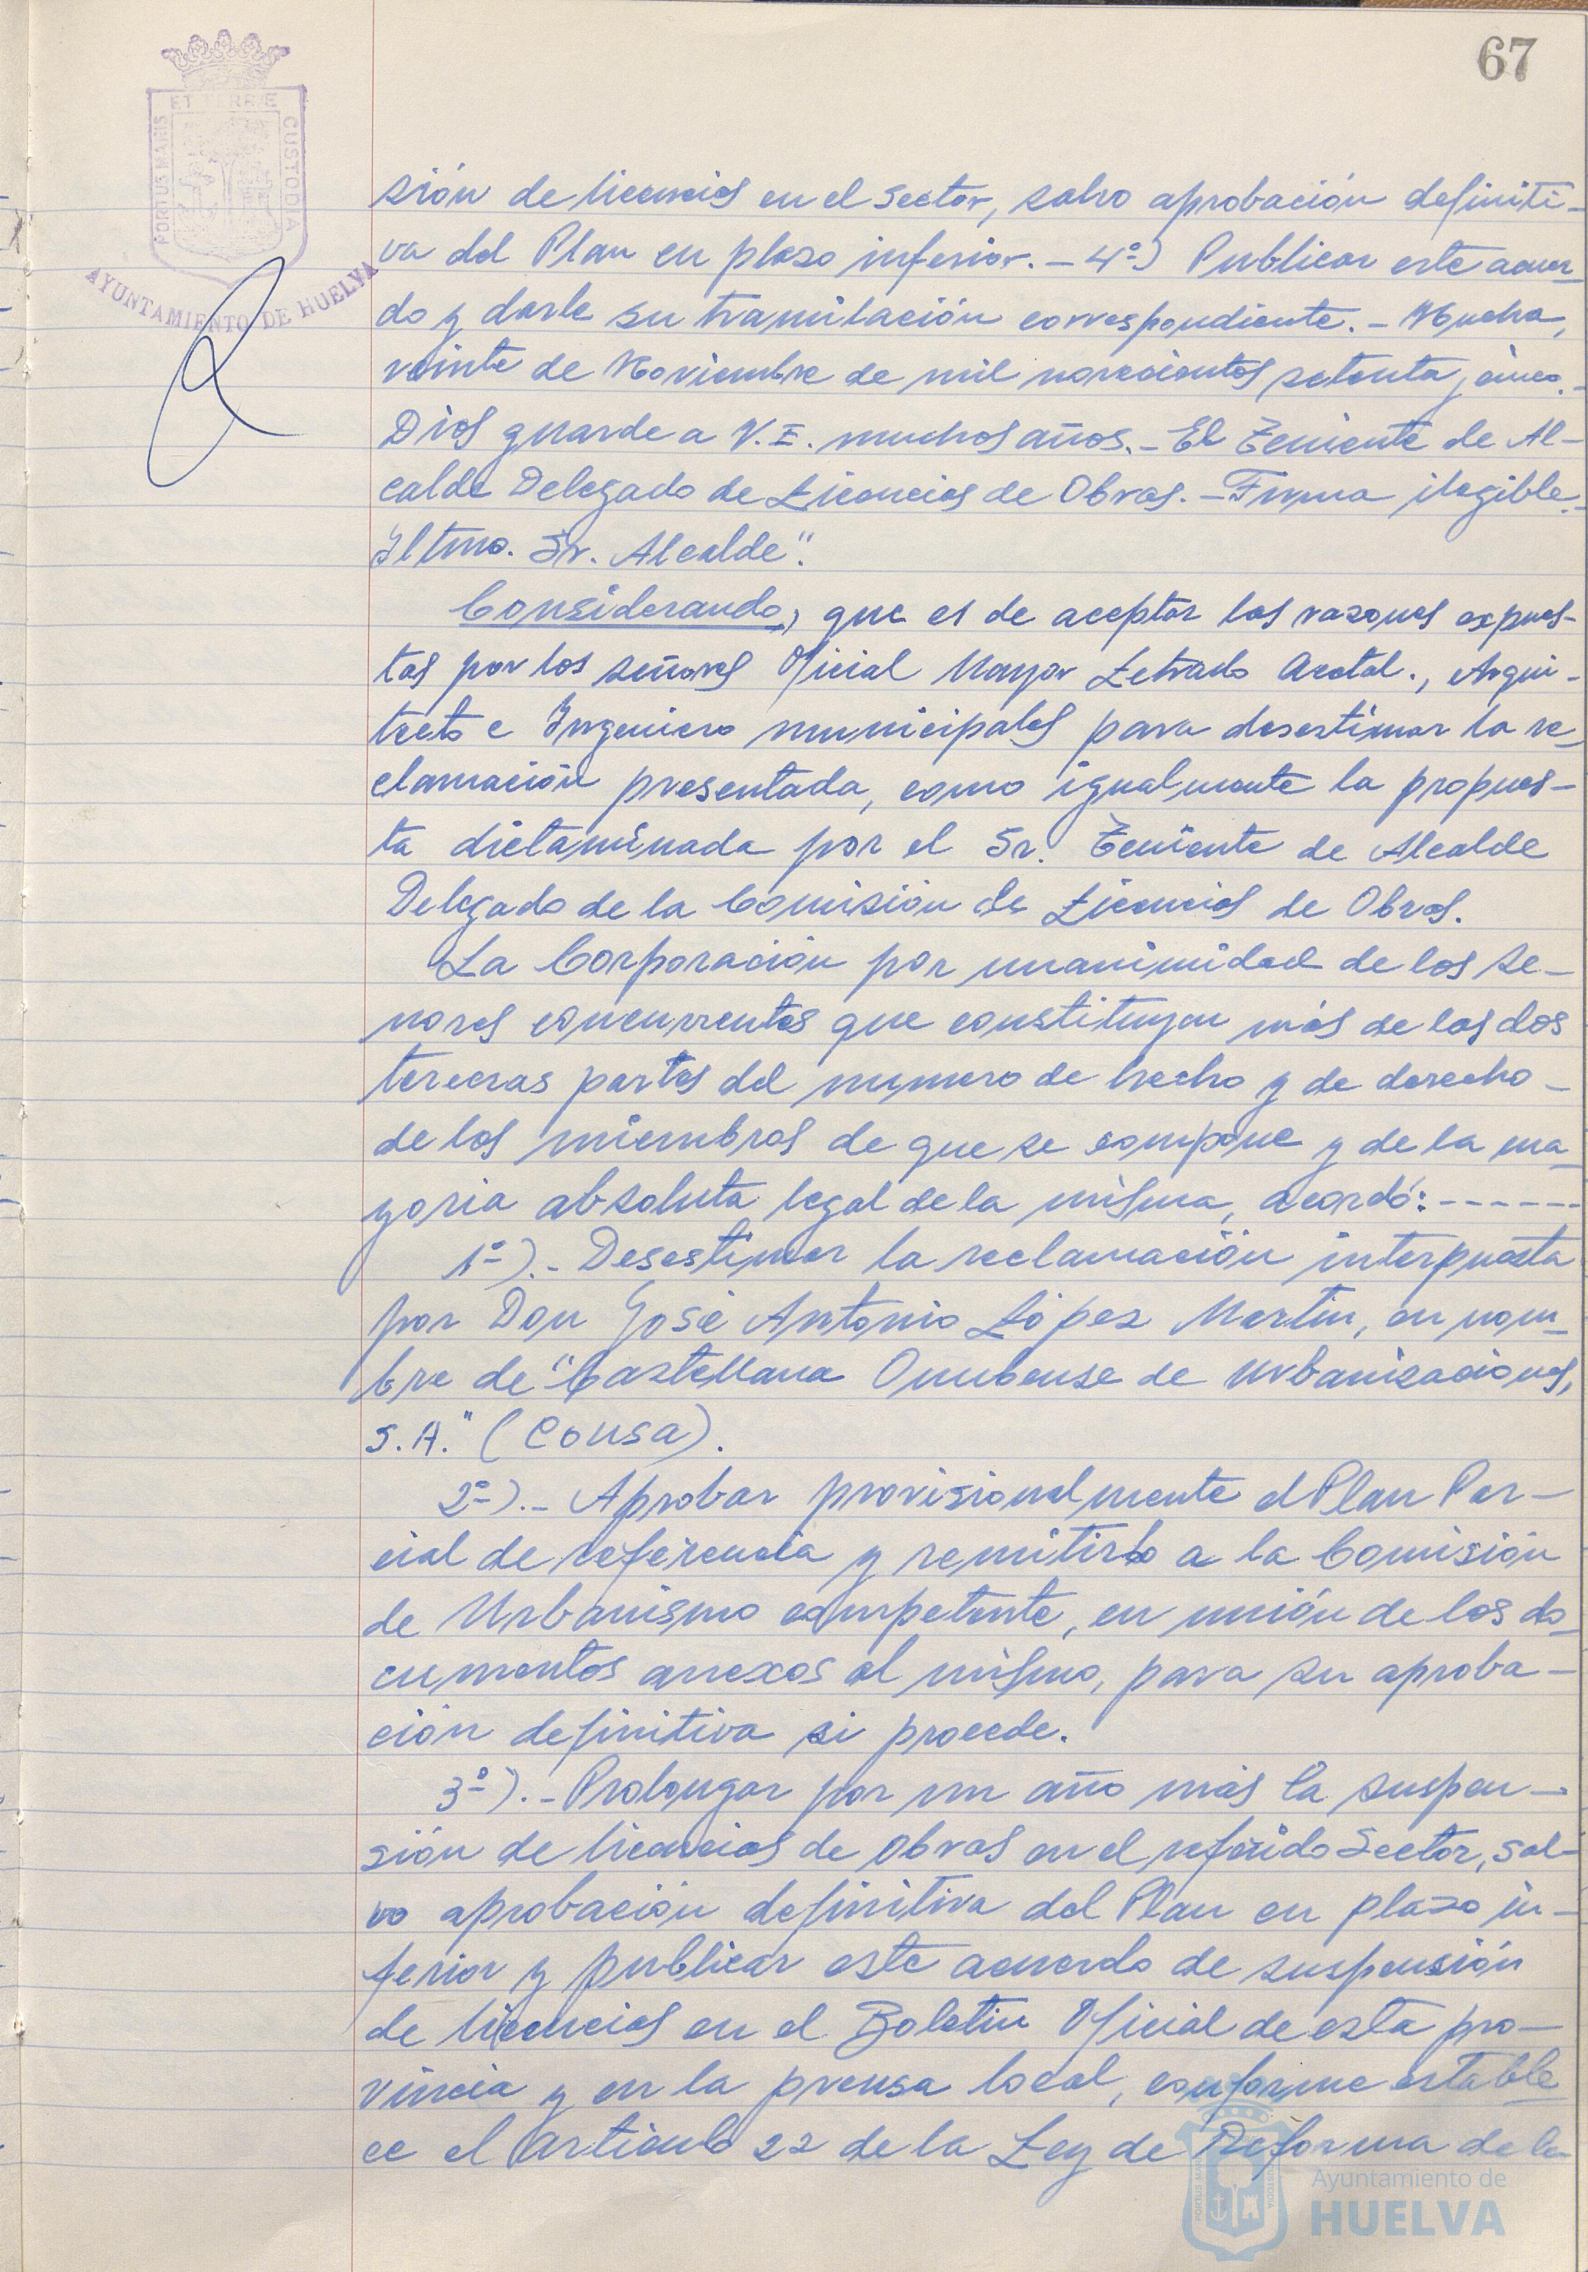 67
PORTUS MARIS ET TERRE CUSTODIA
AYUNTAMIENTO DE HUELVA
sión de licencias en el Sector, salvo aprobación definiti-
va del Plan en plazo inferior.- 4º) Publicar este acuer-
do y darle su tramitación correspondiente.- Huelva,
veinte de Noviembre de mil novecientos setenta y cinco.-
Dios guarde a V.E. muchos años.- El Teniente de Al-
calde Delegado de Licencias de Obras.- Firma ilegible.-
Iltmo. Sr. Alcalde".
Considerando, que es de aceptar las razones expues-
tas por los señores Oficial Mayor Letrado Acctal., Arqui-
tecto e Ingeniero municipales para desestimar la re-
clamación presentada, como igualmente la propues-
ta dictaminada por el Sr. Teniente de Alcalde
Delegado de la Comisión de Licencias de Obras.
La Corporación por unanimidad de los se-
nores concurrentes que constituyen más de las dos
terceras partes del numero de hecho y de derecho-
de los miembros de que se compone y de la ma-
yoria absoluta legal de la misma, acordó:------
1º).- Desestimar la reclamación interpuesta
por Don José Antonio López Martin, en nom-
bre de "Castellana Onubense de Urbanizaciones,
S.A." (Cousa).
2º).- Aprobar provisionalmente el Plan Par-
cial de referencia y remitirlo a la Comisión
de Urbanismo competente, en unión de los do-
cumentos anexos al mismo, para su aproba-
ción definitiva si procede.
3º).- Prolongar por un año más la suspen-
sión de licencias de obras en el referido Sector, sal-
vo aprobación definitiva del Plan en plazo in-
ferior y publicar este acuerdo de suspensión
de licencias en el Boletin Oficial de esta pro-
vincia y en la prensa local, conforme estable
ce el articulo 22 de la Ley de Reforma de la
Ayuntamiento de
HUELVA